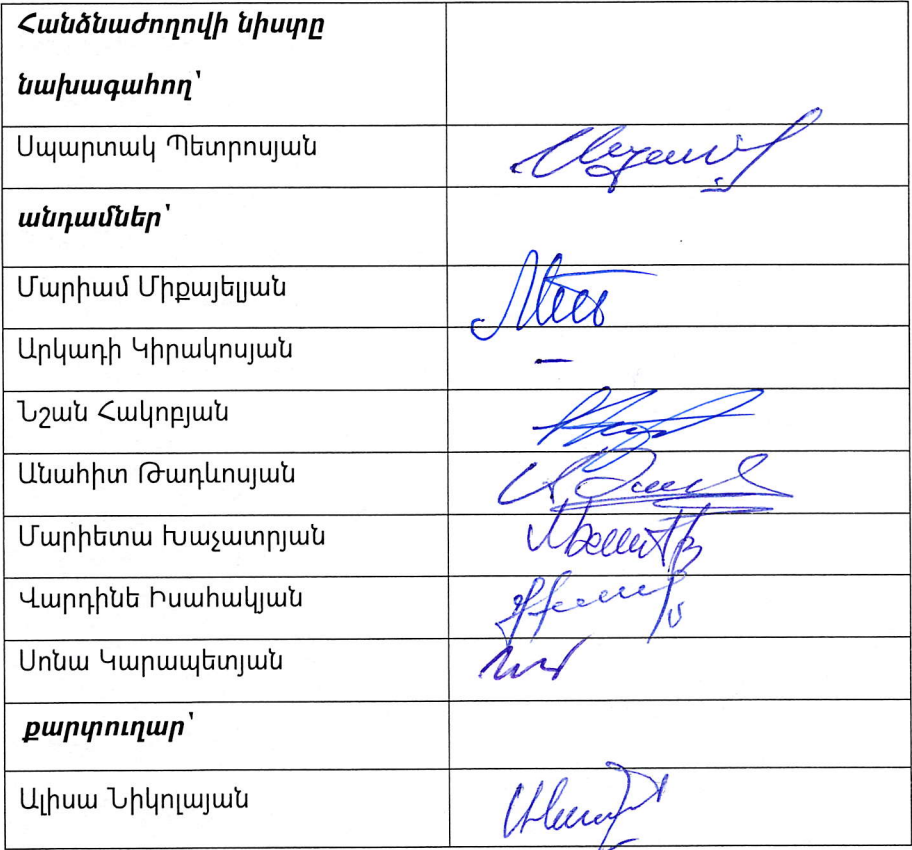 Հանձնաժողովի նիստը
նախագահող՝
Սպարտակ Պետրոսյան
անդամներ՝
Մարիամ Միքայելյան
Արկադի Կիրակոսյան
—
Նշան Հակոբյան
Անահիտ Թադևոսյան
Մարիետա Խաչատրյան
Վարդինե Իսահակյան
Սոնա Կարապետյան
քարտուղար՝
Ալիսա Նիկոլայան